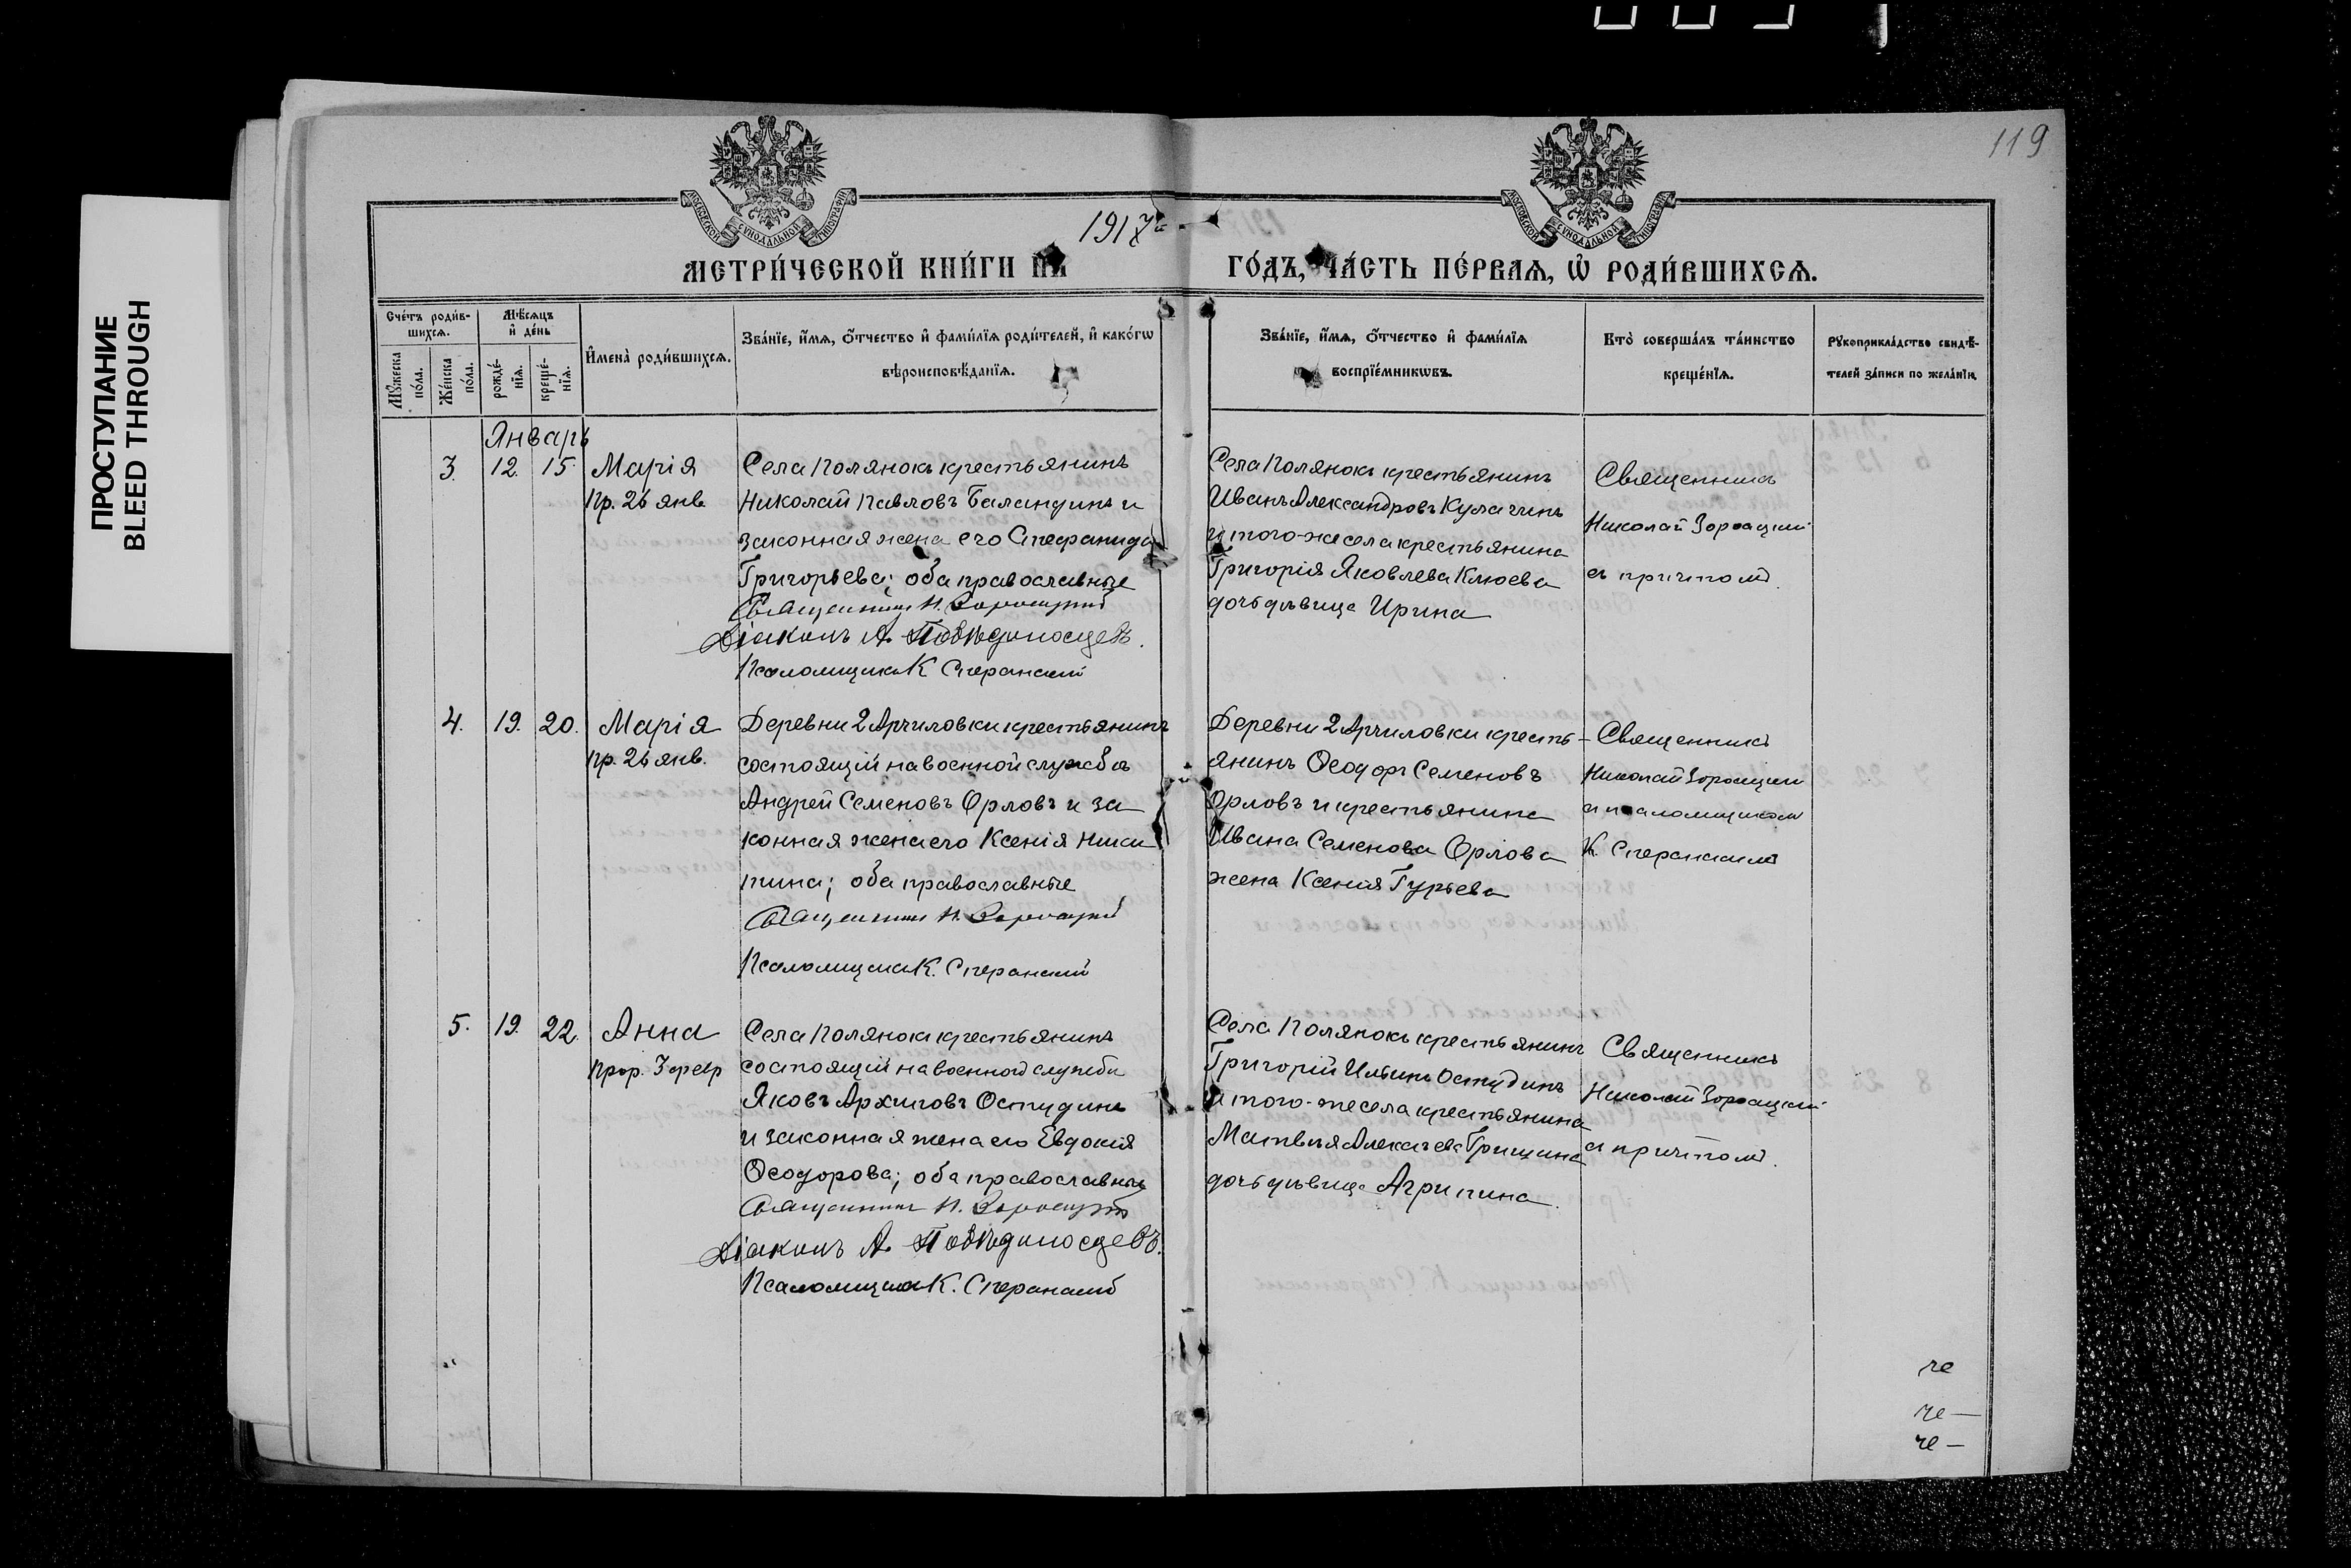 119
ПРОСТУПАНИЕ
BLEED THROUGH
МОСКОВСКОЙ СУНОДАЛЬНОЙ ТИПОГРАФІИ
МОСКОВСКОЙ СУНОДАЛЬНОЙ ТИПОГРАФІИ
1917
МЕТРИ́ЧЕСКОЙ КНИ́ГИ НА
ГО́ДЪ, ЧА́СТЬ ПЕ́РВАѦ, Ѡ҆ РОДИ́ВШИХСѦ.
Сче́тъ роди́в-
шихсѧ.
Мꙋ́жеска по́ла.
Же́нска по́ла.
Мѣ́сѧцъ
и҆ де́нь
рожде́-
нїѧ.
креще́-
нїѧ.
И҆мена̀ роди́вшихсѧ.
Зва́нїе, и҆́мѧ, ѻ҆́тчество и҆ фами́лїѧ роди́телей, и҆ како́гѡ
вѣроисповѣ́данїѧ.
Зва́нїе, и҆́мѧ, ѻ҆́тчество и҆ фами́лїѧ
воспрїе́мникѡвъ.
Кто̀ соверша́лъ та́инство
креще́нїѧ.
Рꙋкоприкла́дство свидѣ́-
телей за́писи по жела́нїю.
Январь
3. 12. 15. Марія
Пр. 26 янв.
Села Полянокъ крестьянинъ
Николай Павловъ Баландинъ и
законная жена его Стефанида
Григорьева; оба православные
Священникъ Н.
Діаконъ А. Побѣдоносцевъ.
Псаломщикъ К Сперанскій
Села Полянокъ крестьянинъ
Иванъ Александровъ Кулагинъ
и того-же села крестьянина
Григорія Яковлева Клюева
дочь дѣвица Ирина
Священникъ
Николай
съ причтомъ.
4. 19. 20. Марія
пр. 26 янв.
Деревни 2 Арчиловки крестьянинъ
состоящій на военной службѣ
Андрей Семеновъ Орловъ и за
конная жена его Ксенія Ники
тина; оба православные
Священникъ Н.
Псаломщикъ К. Сперанскій
Деревни 2 Арчиловки кресть-
янинъ Ѳеодоръ Семеновъ
Орловъ и крестьянина
Ивана Семенова Орлова
жена Ксенія Гурьева
Священникъ
Николай
съ псаломщикомъ
К. Сперанскимъ
5. 19. 22. Анна
Прор. 3 февр
Села Полянокъ крестьянинъ
состоящій на военной службѣ
Яковъ Архиповъ Остудинъ
и законная жена его Евдокія
Ѳеодорова; оба православные
Священникъ Н.
Діаконъ А. Побѣдоносцевъ.
Псаломщикъ К. Сперанскій
Села Полянокъ крестьянинъ
Григорій Ильинъ Остудинъ
и того-же села крестьянина
Матвѣя Алексѣева Гришина
дочь дѣвица Агрипина.
Священникъ
Николай
съ причтомъ.